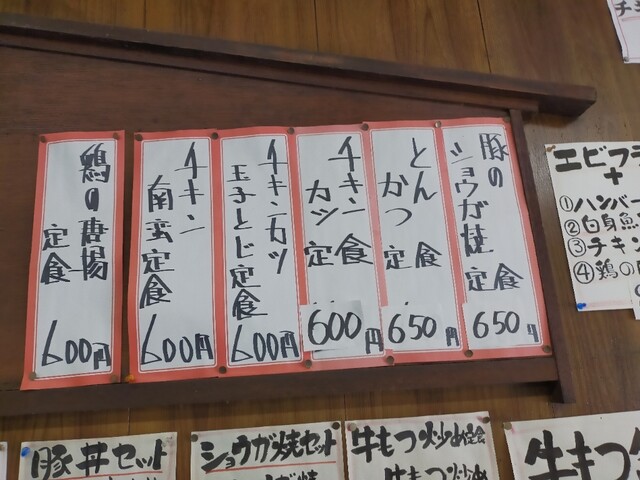 豚の
ショウガ焼
定食
650円
とん
かつ
定食
650円
チキン
カツ
定食
600円
チキンカツ
玉子とじ定食
600円
チキン
南蛮定食
600円
鶏の唐揚
定食
600円
エビフラ
+
①ハンバー
②白身魚
③チキ
④鶏の
豚丼セット
ショウガ焼セット
牛もつ炒め定食
牛もつ炒め
牛もつ
チキ